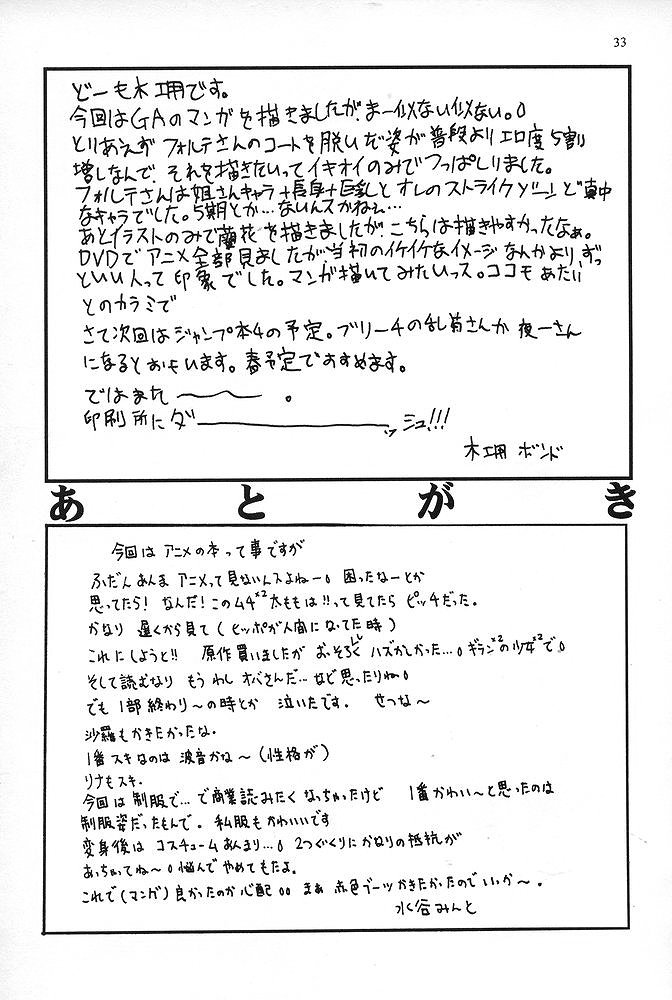 33
どーも木工用です。
今回はGAのマンガを描きましたが、まー似ない似ない。
とりあえず フォルテさんのコートを脱いだ姿が普段よりエロ度5割
増しなんで、それを描きたいってイキオイのみでつっぱしりました。
フォルテさんは姐さんキャラ+長身+巨乳とオレのストライクゾーンど真中
なキャラでした。5期とか…ないんスかねぇ…
あとイラストのみで蘭花を描きましたが、こちらは描きやすかったなぁ。
DVDでアニメ全部見ましたが、当初のイケイケなイメージなんかより、ずっ
といい人って印象でした。マンガ描いてみたいっス。ココモあたい
とのカラミで
さて次回はジャンプ本4の予定。ブリーチの乱菊さんか夜一さん
になるとおもいます。春予定ですすめます。
ではまた〜〜。
印刷所にダーーッシュ!!!
木工用 ボンド
あとがき
今回は アニメの本って事ですが
ふだんあんま アニメって見ないんスよねー。困ったなーとか
思ってたら! なんだ!このムチ×2太ももは!!って見てたら ピッチだった。
かなり 遅くから見て(ヒッポが人間になってた時)
これにしようと!! 原作買いましたが おそろしく ハズかしかった…。ギラン×2の少女×2で。
そして読むなり もう わし オバさんだ… など思ったりね。
でも 1部終わり〜の時とか 泣いたです。 せつな〜
沙羅もかきたかったな。
1番スキなのは 波音かな〜(性格が)
リナもスキ.
今回は 制服で…で商業読みたく なっちゃったけど 1番かわい〜と思ったのは
制服姿だったもんで。私服もかわいいです
変身後は コスチュームあんまり…。2つぐくりにかなりの抵抗が
あっちゃってね〜。悩んで やめてもたよ。
これで(マンガ)良かったのか心配。。まぁ 赤色ブーツかきたかったのでいっか〜。
水谷みんと